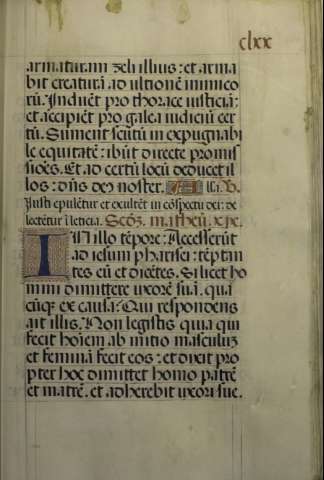 clxx
armaturam zeli illius: et arma
bit creaturā ad ultionē inimico
rū. Induet pro thorace iusticiā:
et accipiet pro galea iudiciū cer
tū. Sument scutū inexpugnabi
le equitatē: ibūt directe promis
siōes. Et ad certū locū deducet il
los: dn̄s de9 noster. All'a. V.
Iusti epulētur et exultēt in cōspectu dei: de
lectētur ī leticia. Scd̄z. matheū. xix.
IN illo tēpore: Accesserūt
ad iesum pharisei: tēptan
tes eū et dicētes. Si licet ho
mini dimittere uxorē suā. qua
cūq̄ ex causa? Qui respondens
ait illis. Non legistis quia qui
fecit hoīem ab initio masculuz
et feminā fecit eos: et dixit pro
pter hoc dimittet homo patrē
et matrē. et adherebit uxori sue.